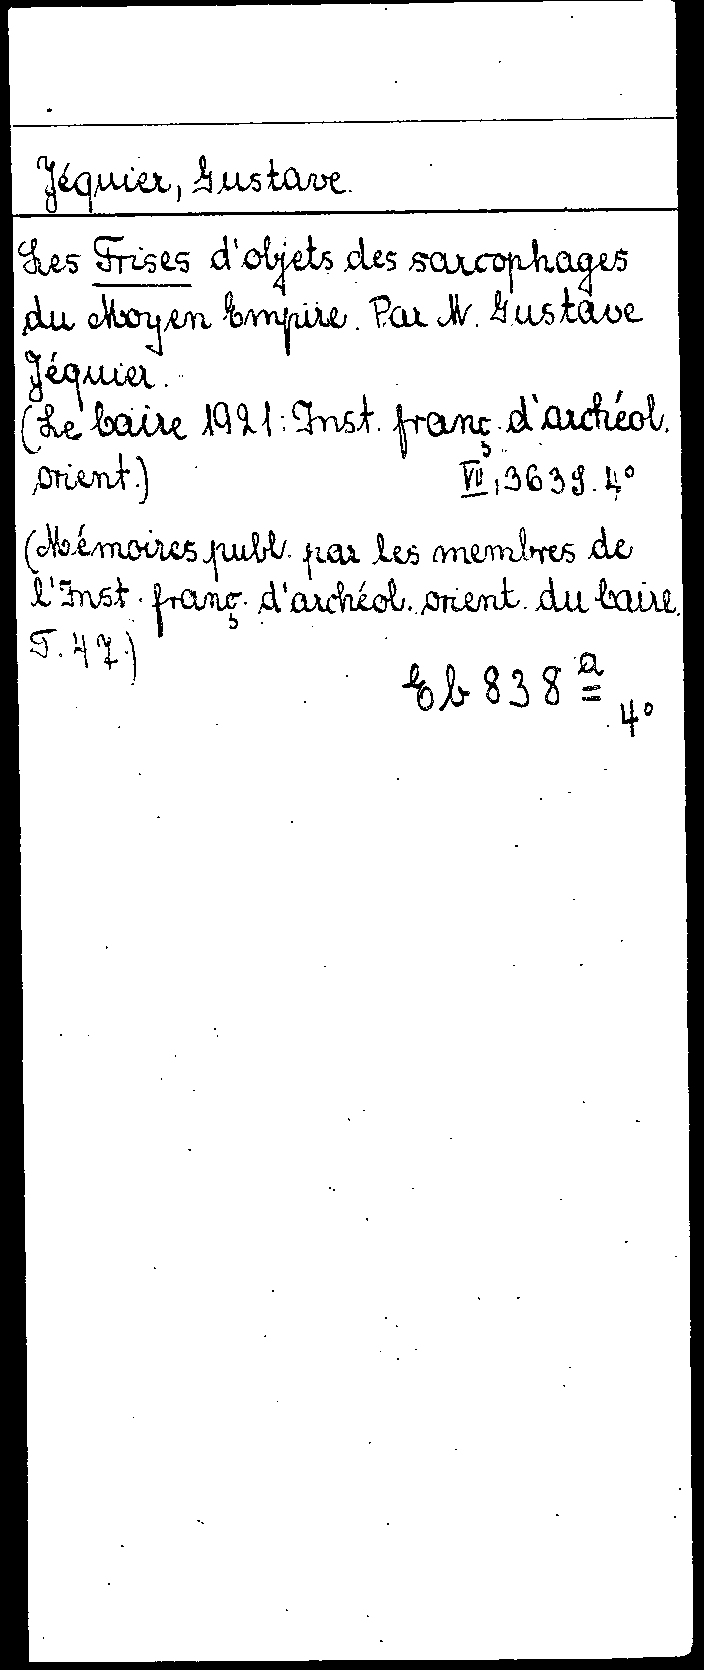 Jéquier, Gustave.
Les Frises d'objets des sarcophages
du Moyen Empire. Par M. Gustave
Jéquier.
(Le Caire 1921: Inst. franç. d'archéol.
orient.) VII, 3639. 4°
(Mémoires publ. par les membres de
l'Inst. franç. d'archéol. orient. du Caire.
T. 47.)
Eb 838 a
4°